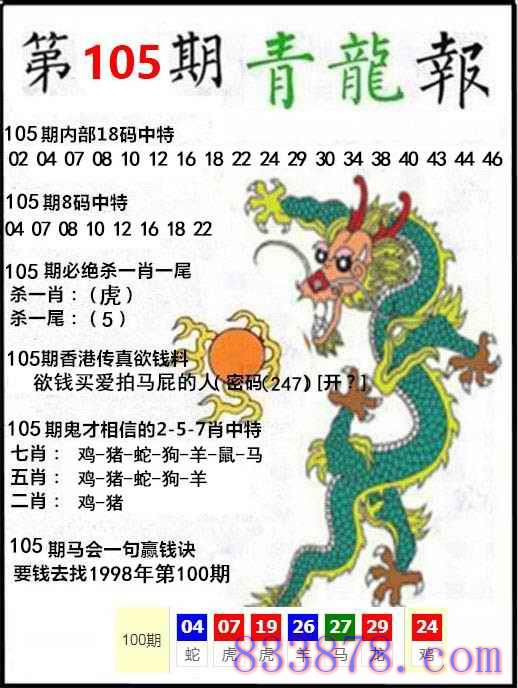 第105期 青龍報
105期内部18码中特
02 04 07 08 10 12 16 18 22 24 29 30 34 38 40 43 44 46
105期8码中特
04 07 08 10 12 16 18 22
105期必绝杀一肖一尾
杀一肖：(虎)
杀一尾：(5)
105期香港传真欲钱料
欲钱买爱拍马屁的人(密码(247)[开？]
105期鬼才相信的2-5-7肖中特
七肖： 鸡-猪-蛇-狗-羊-鼠-马
五肖： 鸡-猪-蛇-狗-羊
二肖： 鸡-猪
105期马会一句赢钱诀
要钱去找1998年第100期
100期 04 07 19 26 27 29 24
蛇 虎 虎 羊 马 龙 鸡
833878.com